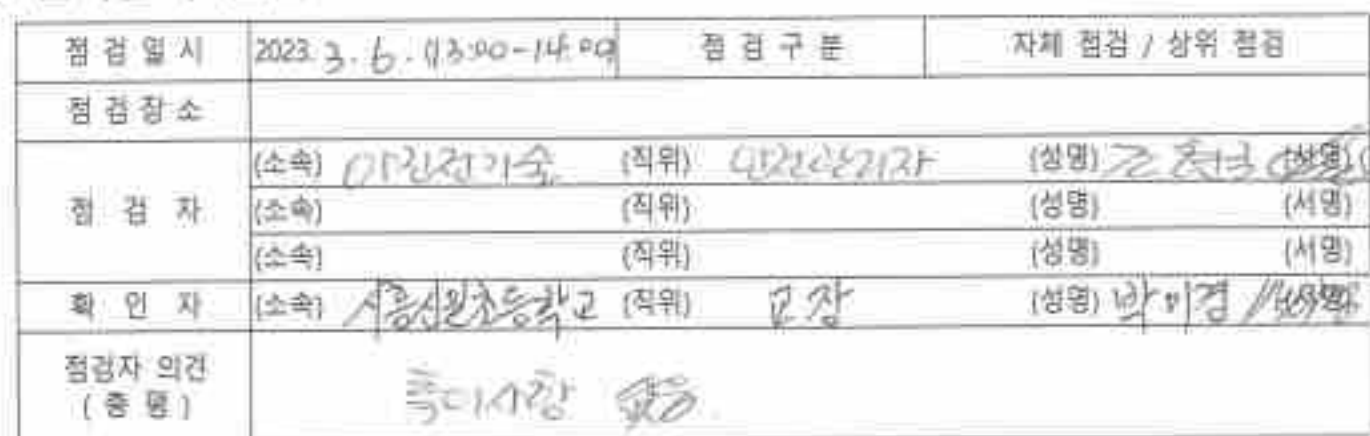 점 검 일 시 2023. 3. 6. (13:00-14:00) 점 검 구 분 자체 점검 / 상위 점검
점 검 장 소
(소속) (직위) 안전관리자 (성명) (서명)
점 검 자 (소속) (직위) (성명) (서명)
(소속) (직위) (성명) (서명)
확 인 자 (소속) 시흥신일초등학교 (직위) 교장 (성명) 박미경 (서명)
점검자 의견
( 총 평 )
특이사항 없음